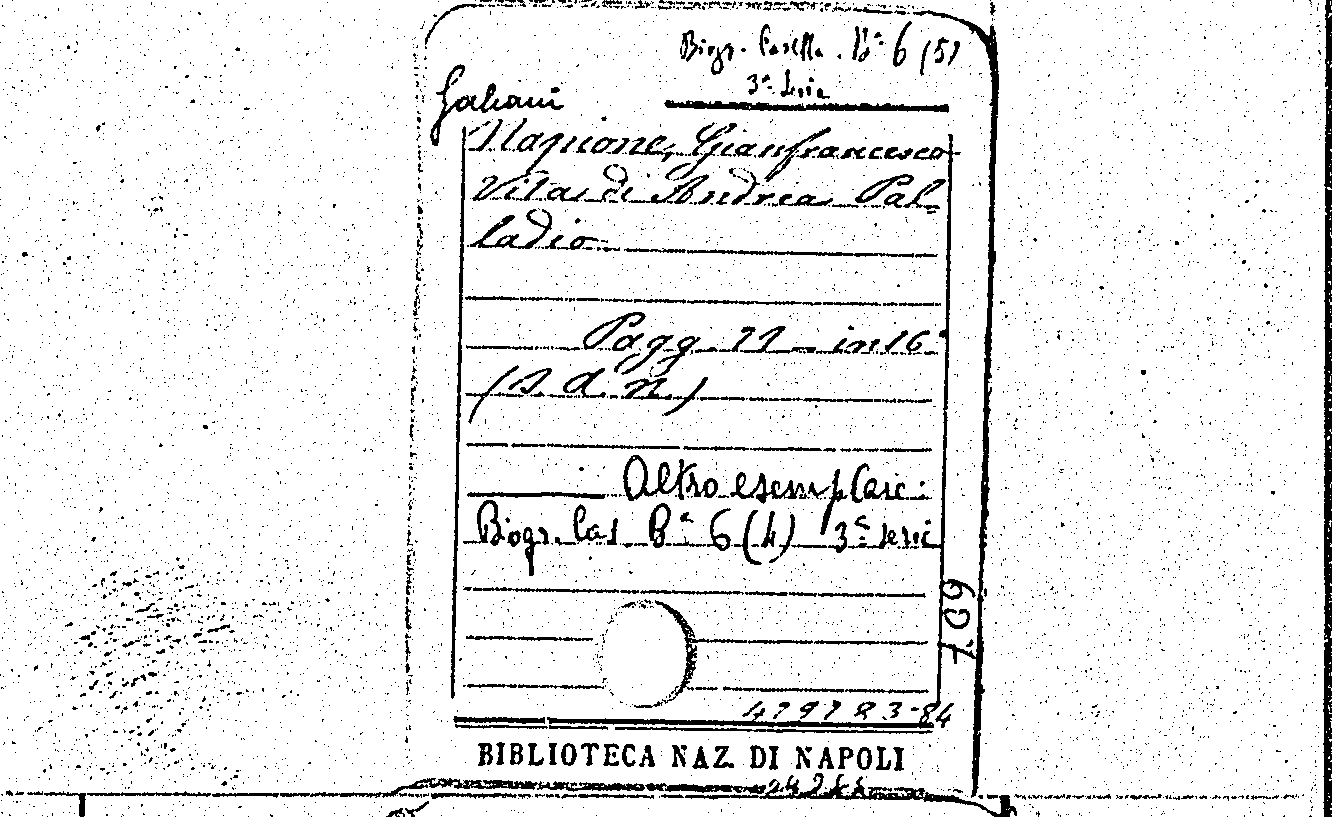 Biogr. Casella. Bª 6 (5)
3ª Serie
Galeani
Napione, Gianfrancesco
Vita di Andrea Pal-
ladio
Pagg. 77 - in 16º
(s. d. n.)
Altro esemplare:
Biogr. Cas. Bª 6 (4) 3ª serie
7.09
479783-84
BIBLIOTECA NAZ. DI NAPOLI